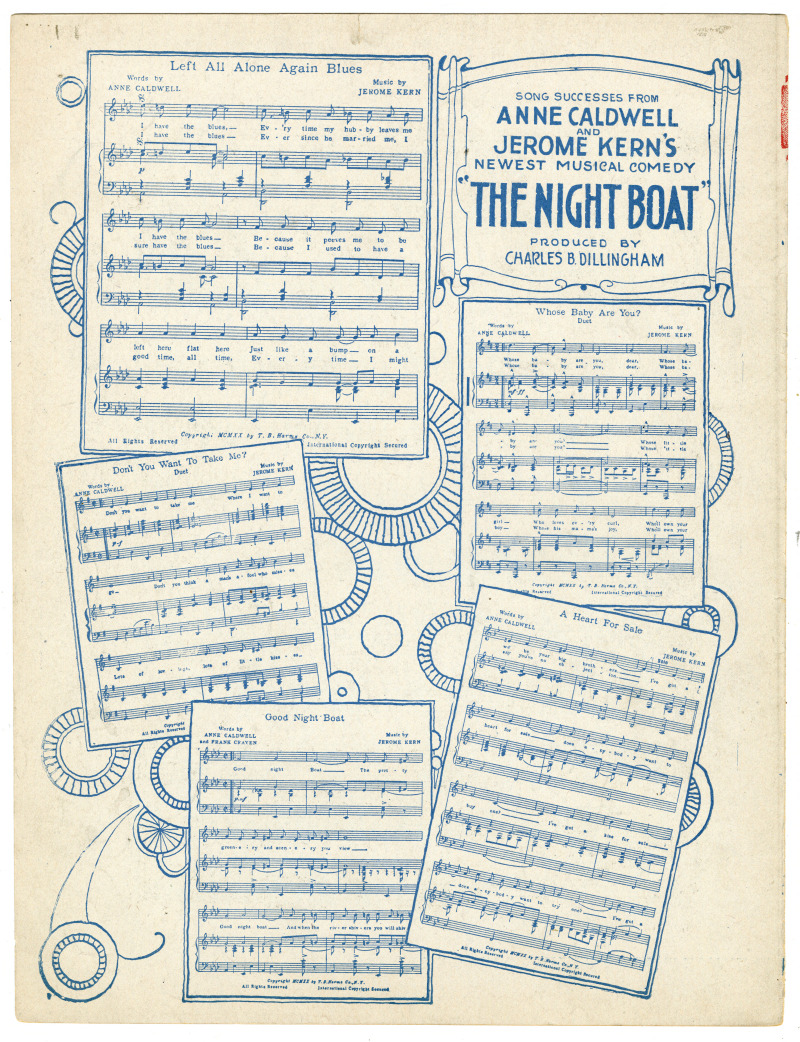 Left All Alone Again Blues
Words by
ANNE CALDWELL
Music by
JEROME KERN
I have the blues,— Ev-'ry time my hub-by leaves me
I have the blues— Ev-er since he mar-ried me, I
I have the blues— Be-cause it peeves me to be
sure have the blues— Be-cause I used to have a
left here flat here Just like a bump— on a
good time, all time, Ev-er-y time— I might
Copyright MCMXX by T. B. Harms Co., N.Y.
All Rights Reserved
International Copyright Secured
SONG SUCCESSES FROM
ANNE CALDWELL
AND
JEROME KERN'S
NEWEST MUSICAL COMEDY
"THE NIGHT BOAT"
PRODUCED BY
CHARLES B. DILLINGHAM
Whose Baby Are You?
Duet
Words by
ANNE CALDWELL
Music by
JEROME KERN
Whose ba-by are you, dear, Whose ba-
Whose ba-by are you, dear, Whose ba-
-by are you? Whose lit-tle
-by are you? Whose lit-tle
girl— Who loves ev-'ry curl, Who'll own your
boy— Whose his ma-ma's joy, Who'll own your
Copyright MCMXX by T. B. Harms Co., N.Y.
Rights Reserved International Copyright Secured
Don't You Want To Take Me?
Duet
Words by
ANNE CALDWELL
Music by
JEROME KERN
Don't you want to take me Where I want to
go— Don't you think a much a-fool who miss-es
Lots of lots of lit-tle kiss-es
Copyright
All Rights Reserved
A Heart For Sale
Words by
ANNE CALDWELL
Music by
JEROME KERN
your big broth-er Sale I've got a
heart for sale does a-ny-bod-y want to
buy one? I've got a kiss for sale
does a-ny-bod-y want to try one? I've got a
Copyright MCMXX by T. B. Harms Co., N.Y
All Rights Reserved International Copyright Secured
Good Night Boat
Words by
ANNE CALDWELL
and FRANK CRAVEN
Music by
JEROME KERN
Good night Boat The pret-ty
green-e-ry and scen-e-ry you view
Good night boat And when the riv-er shiv-ers you will shiv
Copyright MCMXX by T. B. Harms Co., N.Y.
All Rights Reserved International Copyright Secured